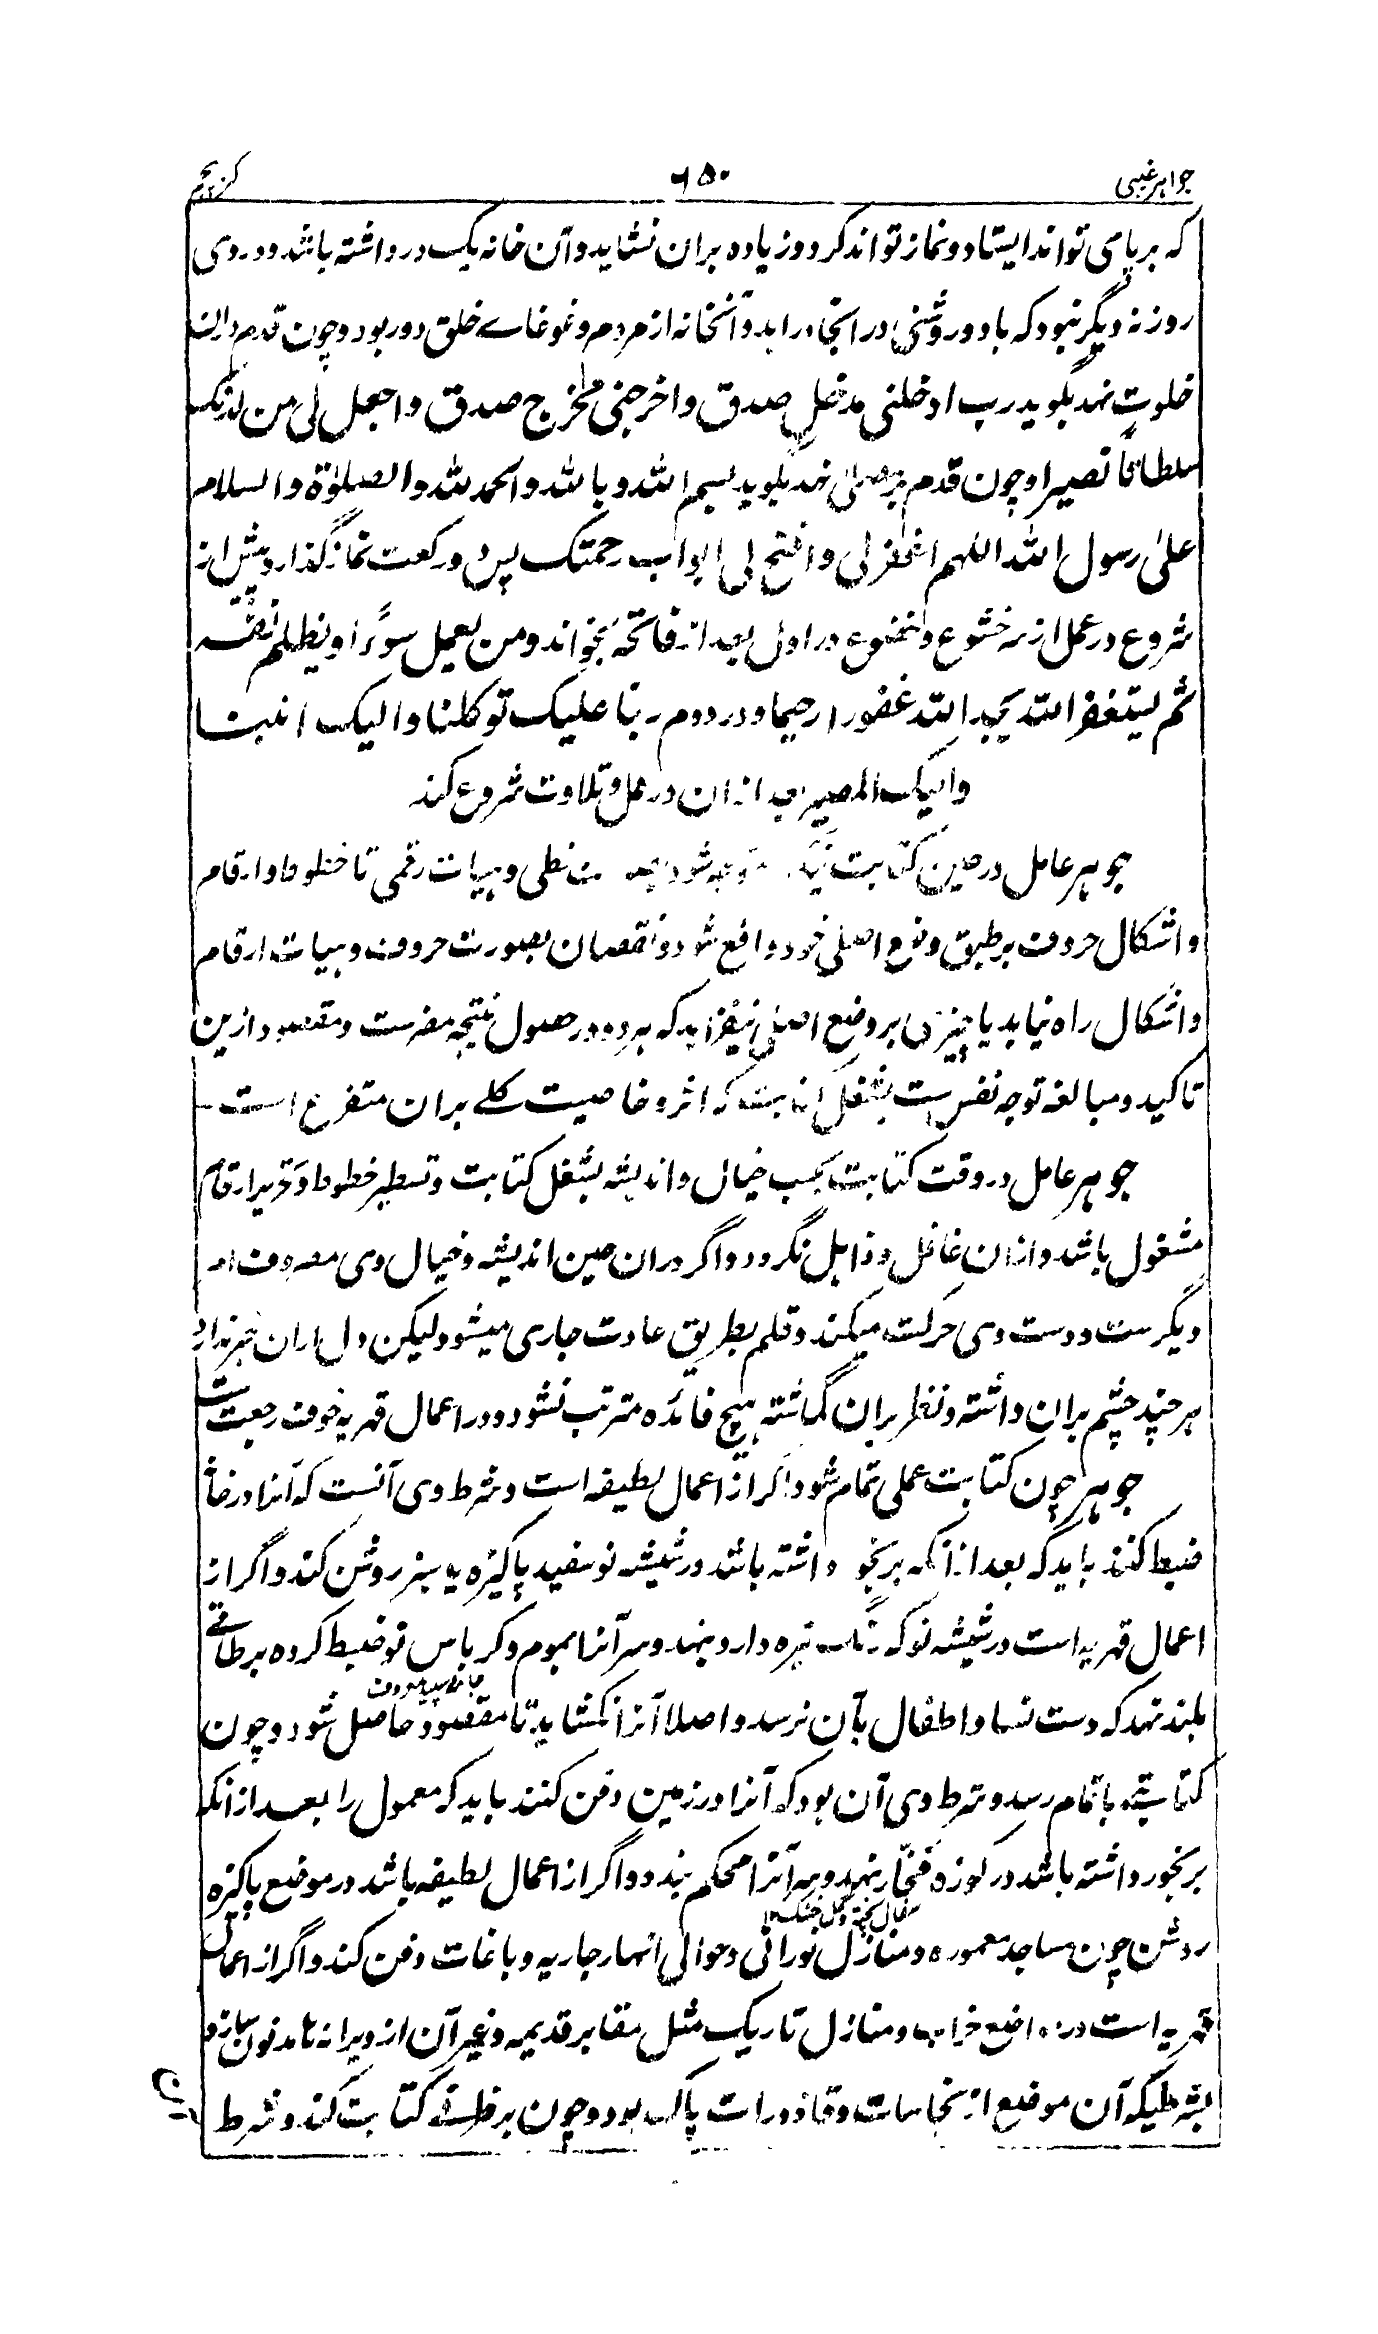 جواہر غیبی
۶۵۰
کنز پنجم
کہ برپا می تواند ایستاد و نماز تواند کرد و زیادہ بران نشاید و آن خانہ یک در داشتہ باشد و در وی
روزنہ دیگر نبود کہ باد و روشنی در انجا در اید و آنخانہ از مردم و غوغاے خلق دور بود و چون قدم دران
خلوت نہد بگوید رب ادخلنی مدخل صدق واخرجنی مخرج صدق واجعل لی من لدنک
سلطانا نصیرا و چون قدم بر مصلی نہد بگوید بسم اللہ و باللہ والحمد للہ والصلوٰۃ والسلام
علیٰ رسول اللہ اللہم اغفر لی وافتح لی ابواب رحمتک پس دو رکعت نماز گذارد پیش از
شروع در عمل از سر خشوع و خضوع در اول بعد از فاتحہ بخواند ومن یعمل سوءً او یظلم نفسہ
ثم یستغفر اللہ یجد اللہ غفورا رحیما و در دوم ربنا علیک توکلنا والیک انبنا
والیک المصیر بعد ازان در عمل و تلاوت شروع کند
جوہر عامل در حین کتابت نیک متوجہ شود خطی و ہیات رقمی تا خطوط و ارقام
و اشکال حروف بر طبق وضع اصلی خود واقع شود و نقصان بصورت حروف و ہیات ارقام
و اشکال راہ نیابد یا چیزی بر وضع اصلی نیفزاید کہ ہردو در حصول نتیجہ مضرست و مقصود ازین
تاکید و مبالغہ توجہ نفس ست بشغل کتابت کہ اثر و خاصیت کلے بران متفرع است
جوہر عامل در وقت کتابت بحسب خیال و اندیشہ بشغل کتابت و تسطیر خطوط و تحریر ارقام
مشغول باشد و ازان غافل و ذاہل نگردد و اگر دران حین اندیشہ و خیال وی مصروف امر
دیگر ست و دست وی حرکت میکند و قلم بطریق عادت جاری میشود لیکن دل ازان خبر ندارد
ہر چند چشم بران داشتہ و نظر بران گماشتہ ہیچ فائدہ مترتب نشود و در اعمال قہریہ خوف رجعت ست
جوہر چون کتابت عملی تمام شود اگر از اعمال لطیفہ است و شرط وی آنست کہ آنرا در خانہ
ضبط کنند باید کہ بعد ازانکہ بر بخور داشتہ باشد در شیشہ نو سفید پاکیزہ یا سبز روشن کند و اگر از
اعمال قہریہ است در شیشہ نو کہ رنگ تیرہ دارد بنہد و سر آنرا بموم و کرباس نو ضبط کردہ بر طاقے
بلند نہد کہ دست نسا و اطفال بآن نرسد و اصلا آنرا نکشاید تا مقصود حاصل شود و چون
کتابت باتمام رسد و شرط وی آن بود کہ آنرا در زمین دفن کنند باید کہ معمول را بعد ازانکہ
بر بخور داشتہ باشد در کوزہ فخّار بنہد و سر آنرا محکم بندد و اگر از اعمال لطیفہ باشد در موضع پاکیزہ
سفال پختہ و گل خشک
روشن چون مساجد معمورہ و منازل نورانی و حوالی انہار جاریہ و باغات دفن کند و اگر از اعمال
قہریہ است در مواضع خراب و منازل تاریک مثل مقابر قدیمہ و غیر آن از ویرانہا مدفون سازد
بشرطیکہ آن موضع از نجاسات و قاذورات پاک بود و چون بر ظرفے کتابت کند و شرط